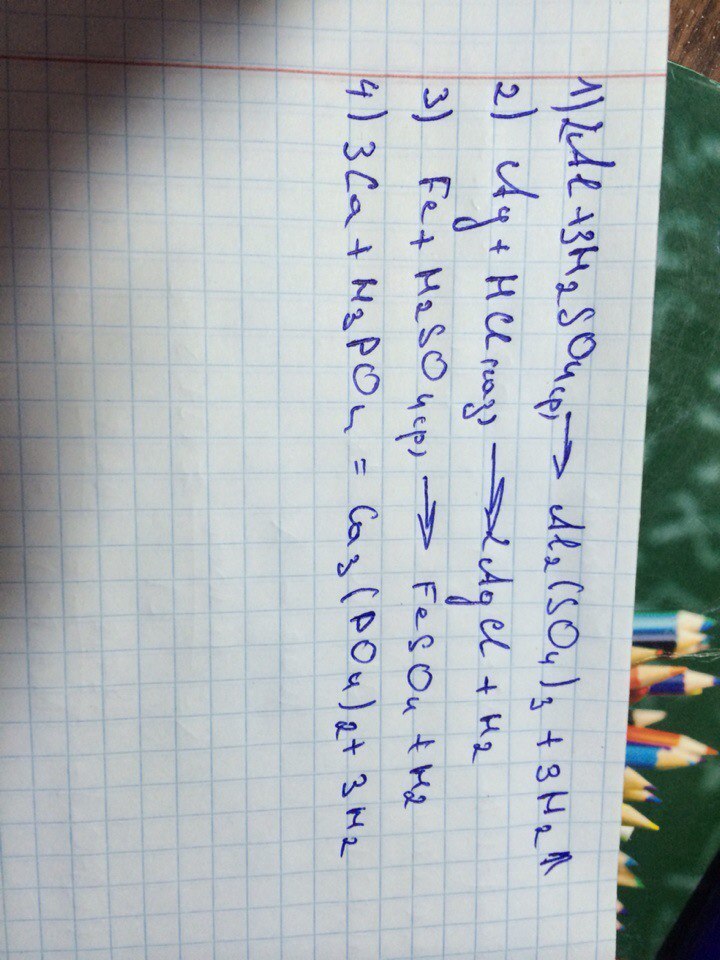 1) 2Al + 3H2SO4(р) → Al2(SO4)3 + 3H2↑
2) Ag + HCl(газ) → 2AgCl + H2
3) Fe + H2SO4(р) → FeSO4 + H2
4) 3Ca + H3PO4 = Ca3(PO4)2 + 3H2